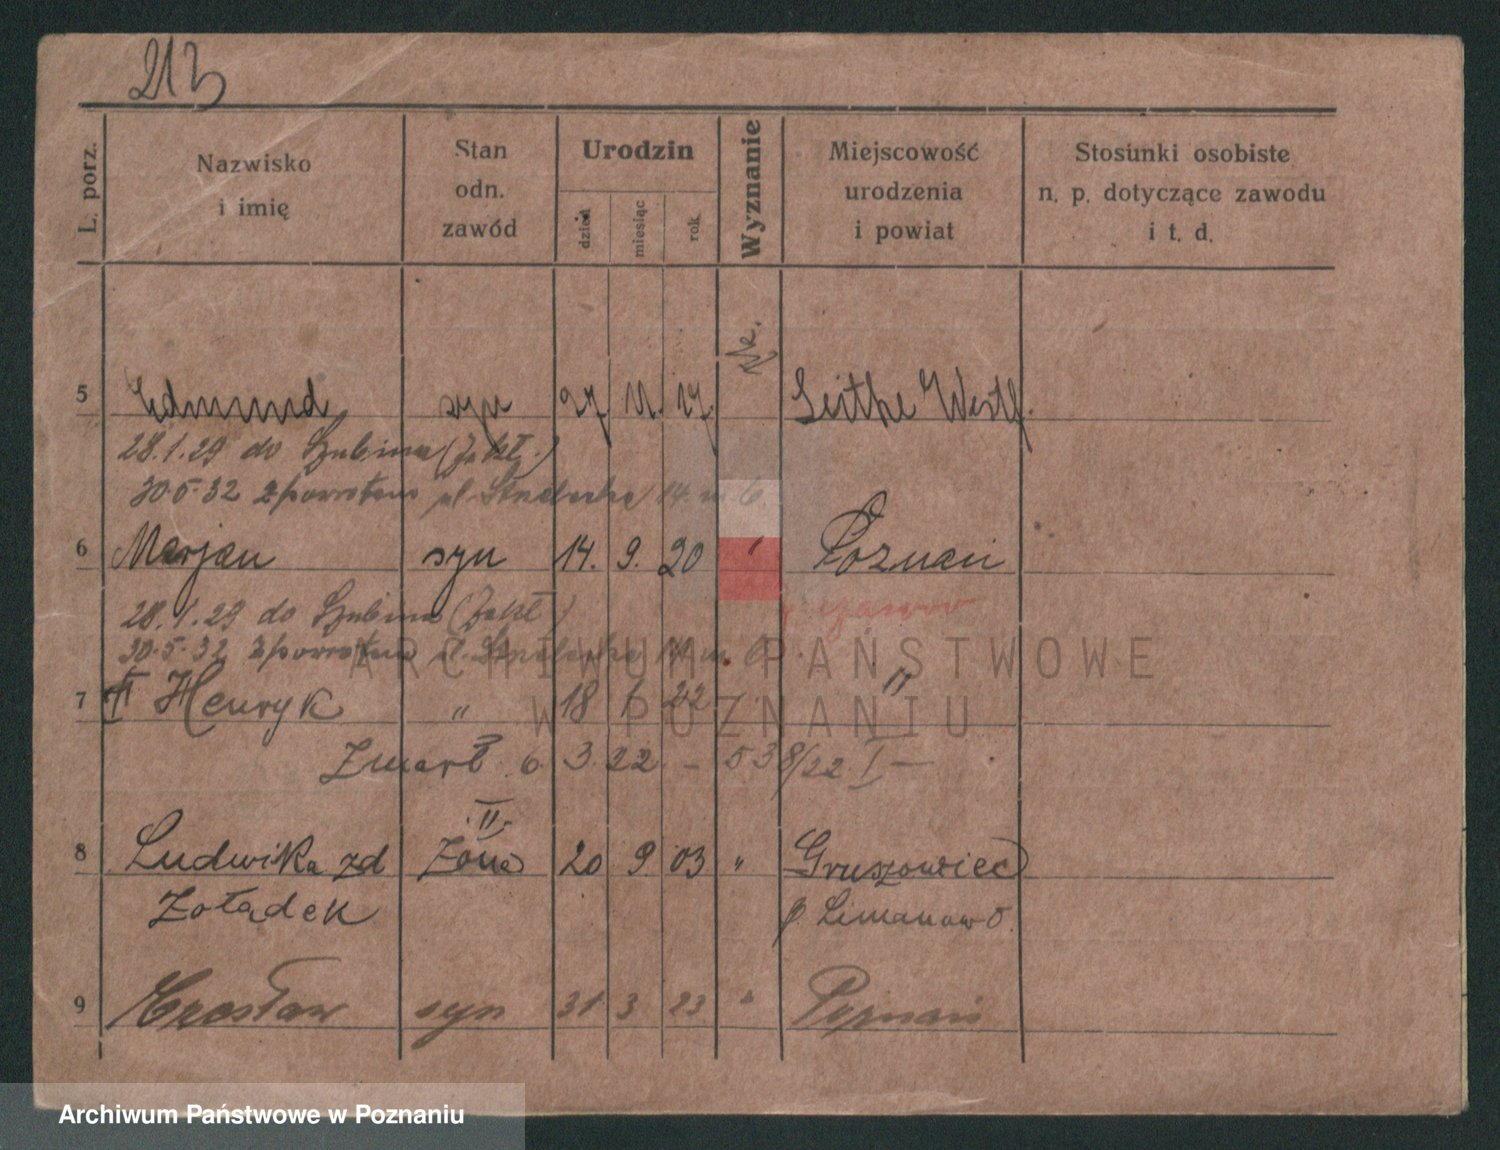 213
L. porz.
Nazwisko
i imię
Stan
odn.
zawód
Urodzin
dzień
miesiąc
rok
Wyznanie
Miejscowość
urodzenia
i powiat
Stosunki osobiste
n. p. dotyczące zawodu
i t. d.
5 Edmund syn 27 11. 17. Westf.
28.1.29 do Szubina (Zakł.)
30.5.32 z powrotem 14 m 6.
6 Marjan syn 14. 9. 20 " Poznań
28.1.29 do Szubina (Zakł)
30.5.32 z powrotem 14 m 6
7 Henryk " 18 1 22 " "
Zmarł 6. 3. 22 - 538/22 I -
II.
8 Ludwika zd żona 20 9. 03 " Gruszowiec
Żołądek p. Limanowa
9 syn 31 3 23 " Poznań
ARCHIWUM PAŃSTWOWE
W POZNANIU
Archiwum Państwowe w Poznaniu